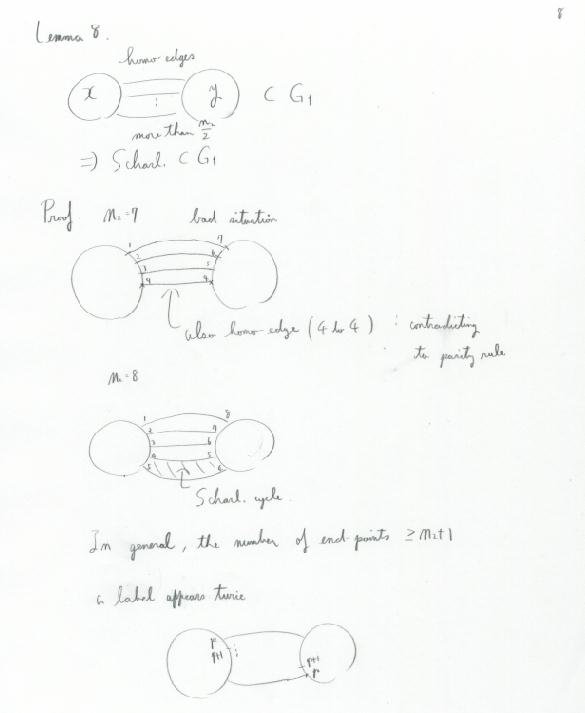 8
Lemma 8.
homo edges
x y ⊂ G₁
more than n₂/2
⇒) Scharl. ⊂ G₁
Proof n₂=7 bad situation
1 7
2 6
3 5
4 4
also homo edge (4 to 4) : contradicting
to parity rule
n₂=8
1 8
2 7
3 6
4 5
5 6
Scharl. cycle.
In general, the number of end-points ≥ n₂+1
a label appears twice
p
p+1
p+1
p